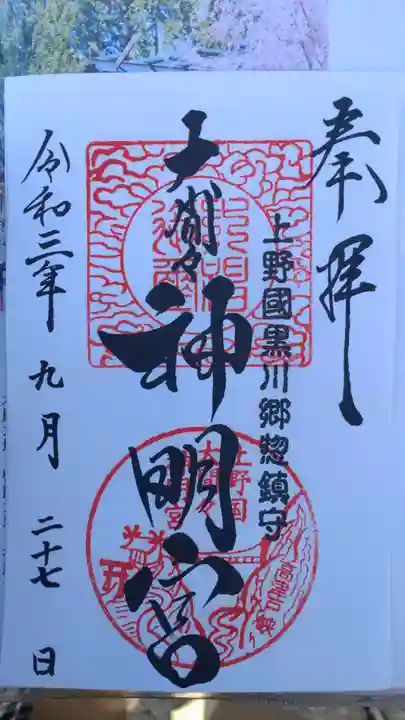 奉拝
上野國黒川郷惣鎮守
大間々
神明宮
令和三年九月二十七日